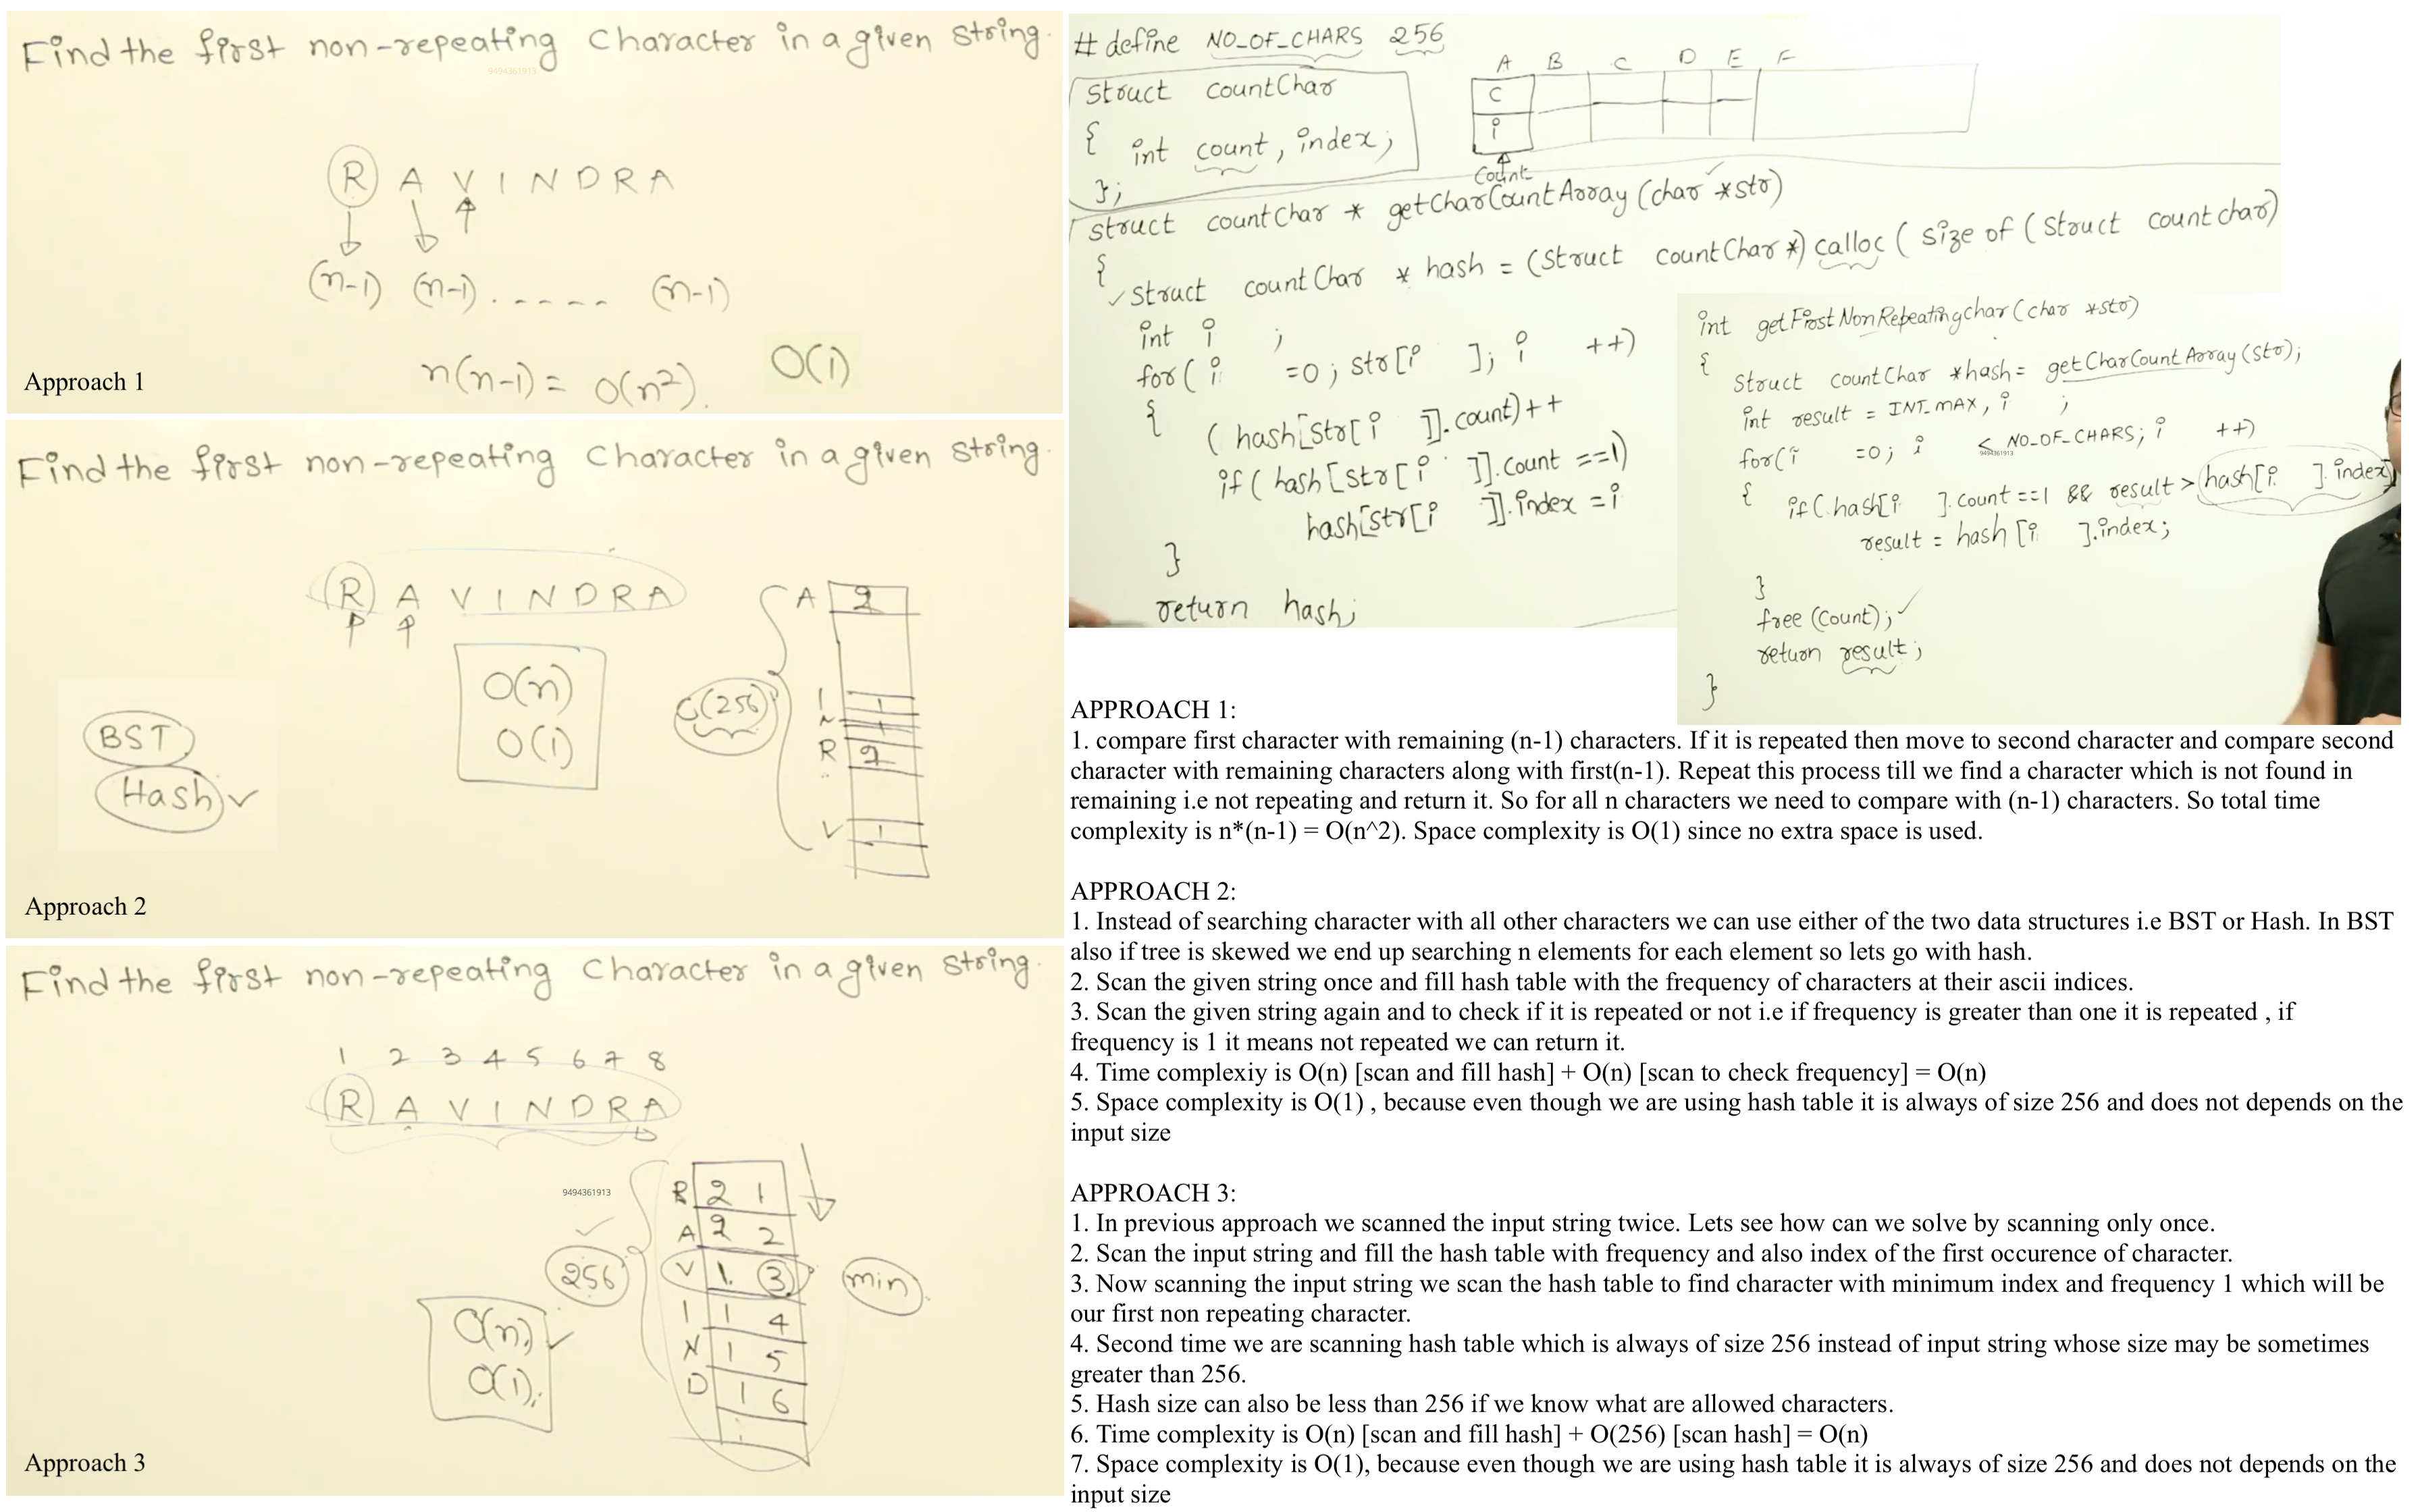 Find the first non-repeating Character in a given string.
9494361913
R A V I N D R A
(n-1) (n-1) . - - - - (n-1)
n(n-1) = O(n²). O(1)
Approach 1
Find the first non-repeating Character in a given string.
R A V I N D R A
A 2
O(n)
O(1)
C(256)
I 1
N 1
R 2
V 1
BST
Hash ✓
Approach 2
Find the first non-repeating Character in a given string.
1 2 3 4 5 6 7 8
R A V I N D R A
9494361913
R 2 1
A 2 2
V 1 3
I 1 4
N 1 5
D 1 6
256
min
O(n) ✓
O(1).
Approach 3
# define NO_OF_CHARS 256
A B C D E F
C
i
Count
Struct countChar
{ int count, index;
};
struct countChar * getCharCountArray (char *str)
{
✓ struct countChar * hash = (struct countChar *) calloc ( size of ( Struct countchar)
int i ;
for ( i =0 ; str[i ]; i ++)
{
( hash[str[i ]].count)++
if ( hash[str[i ]].count ==1)
hash[str[i ]].index = i
}
return hash;
int getFirstNonRepeatingchar (char *str)
{
Struct countChar *hash = getCharCountArray (str);
int result = INT_MAX, i ;
for(i =0; i < NO_OF_CHARS; i ++)
9494361913
{ if ( hash[i ].count ==1 && result > hash[i ].index)
result = hash [i ].index;
}
free (Count); ✓
return result;
}
APPROACH 1:
1. compare first character with remaining (n-1) characters. If it is repeated then move to second character and compare second
character with remaining characters along with first(n-1). Repeat this process till we find a character which is not found in
remaining i.e not repeating and return it. So for all n characters we need to compare with (n-1) characters. So total time
complexity is n*(n-1) = O(n^2). Space complexity is O(1) since no extra space is used.
APPROACH 2:
1. Instead of searching character with all other characters we can use either of the two data structures i.e BST or Hash. In BST
also if tree is skewed we end up searching n elements for each element so lets go with hash.
2. Scan the given string once and fill hash table with the frequency of characters at their ascii indices.
3. Scan the given string again and to check if it is repeated or not i.e if frequency is greater than one it is repeated , if
frequency is 1 it means not repeated we can return it.
4. Time complexiy is O(n) [scan and fill hash] + O(n) [scan to check frequency] = O(n)
5. Space complexity is O(1) , because even though we are using hash table it is always of size 256 and does not depends on the
input size
APPROACH 3:
1. In previous approach we scanned the input string twice. Lets see how can we solve by scanning only once.
2. Scan the input string and fill the hash table with frequency and also index of the first occurence of character.
3. Now scanning the input string we scan the hash table to find character with minimum index and frequency 1 which will be
our first non repeating character.
4. Second time we are scanning hash table which is always of size 256 instead of input string whose size may be sometimes
greater than 256.
5. Hash size can also be less than 256 if we know what are allowed characters.
6. Time complexity is O(n) [scan and fill hash] + O(256) [scan hash] = O(n)
7. Space complexity is O(1), because even though we are using hash table it is always of size 256 and does not depends on the
input size